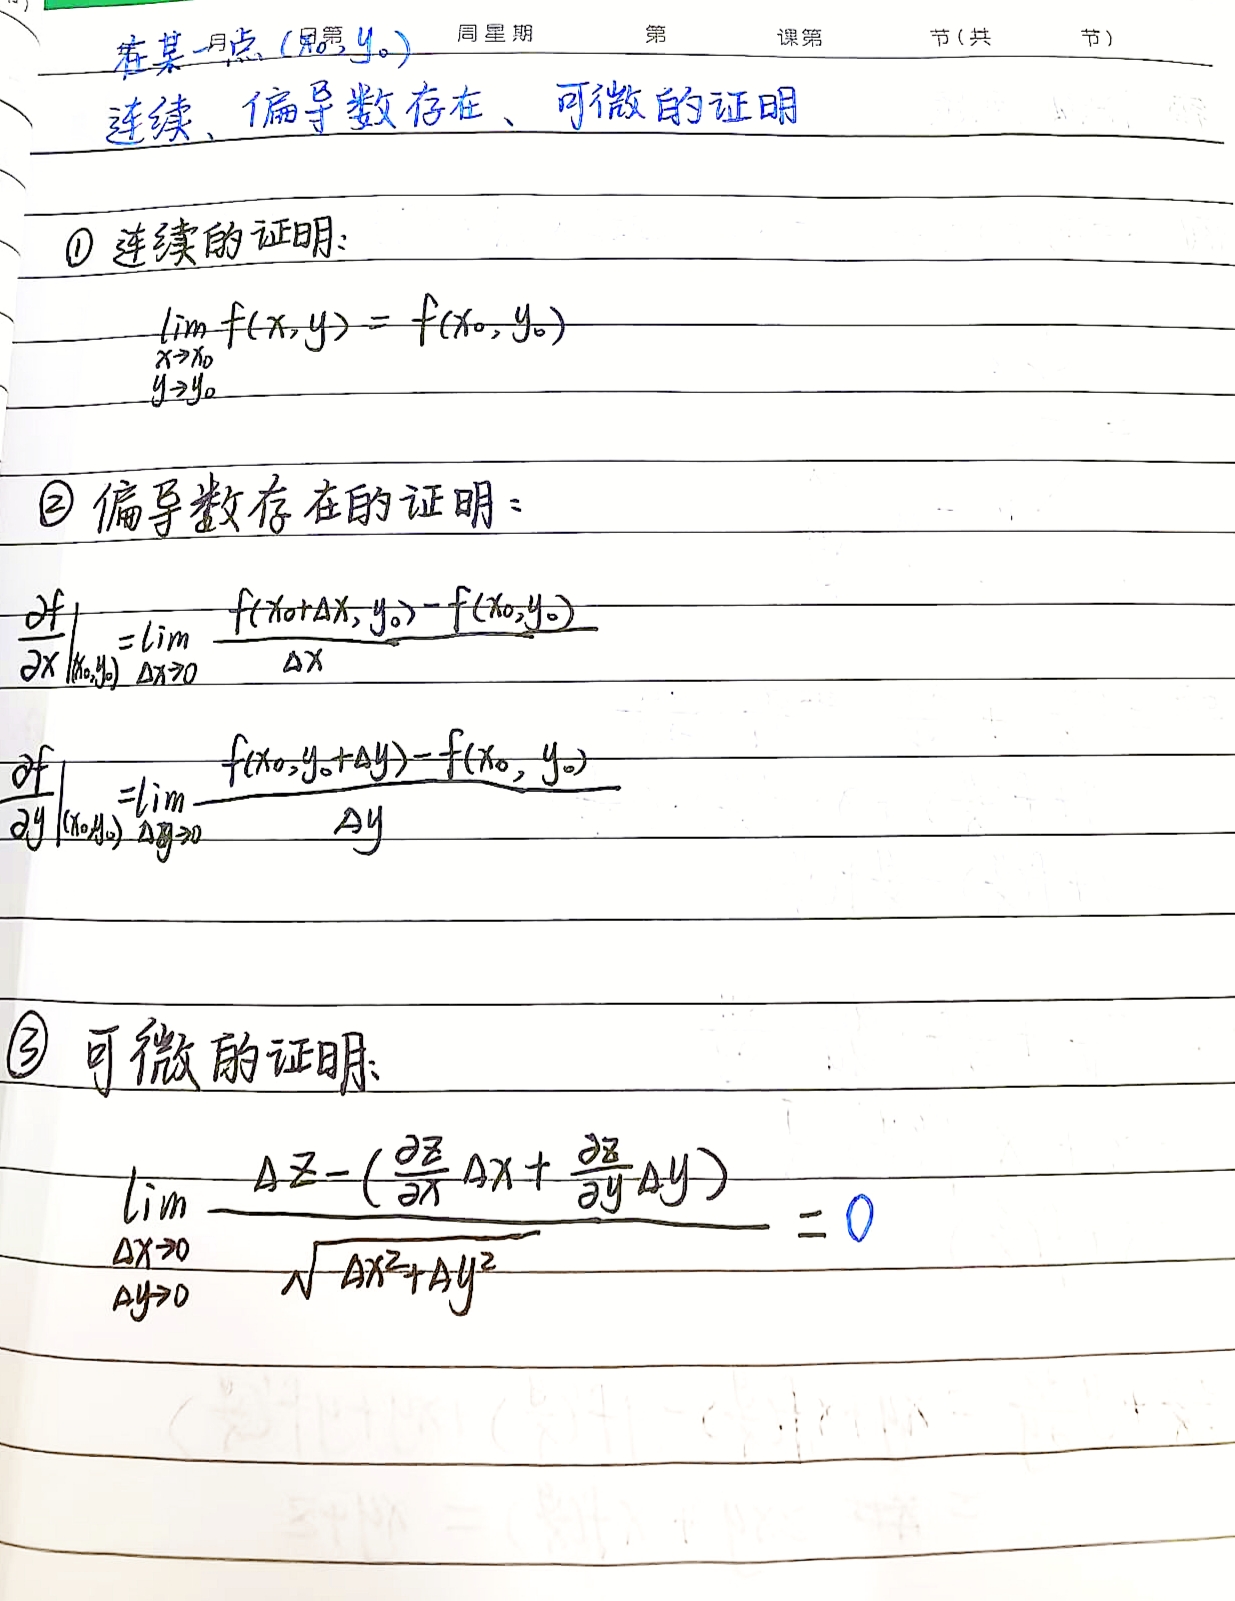 月 日第 周星期 第 课第 节(共 节)
在某一点(x₀, y₀)
连续、偏导数存在、可微的证明
① 连续的证明:
lim f(x, y) = f(x₀, y₀)
x→x₀
y→y₀
② 偏导数存在的证明:
∂f/∂x|(x₀,y₀) = lim Δx→0 (f(x₀+Δx, y₀)-f(x₀,y₀))/Δx
∂f/∂y|(x₀,y₀) = lim Δy→0 (f(x₀,y₀+Δy)-f(x₀, y₀))/Δy
③ 可微的证明:
lim Δx→0 Δy→0 (Δz-(∂z/∂x Δx+∂z/∂y Δy))/√(Δx²+Δy²) = 0